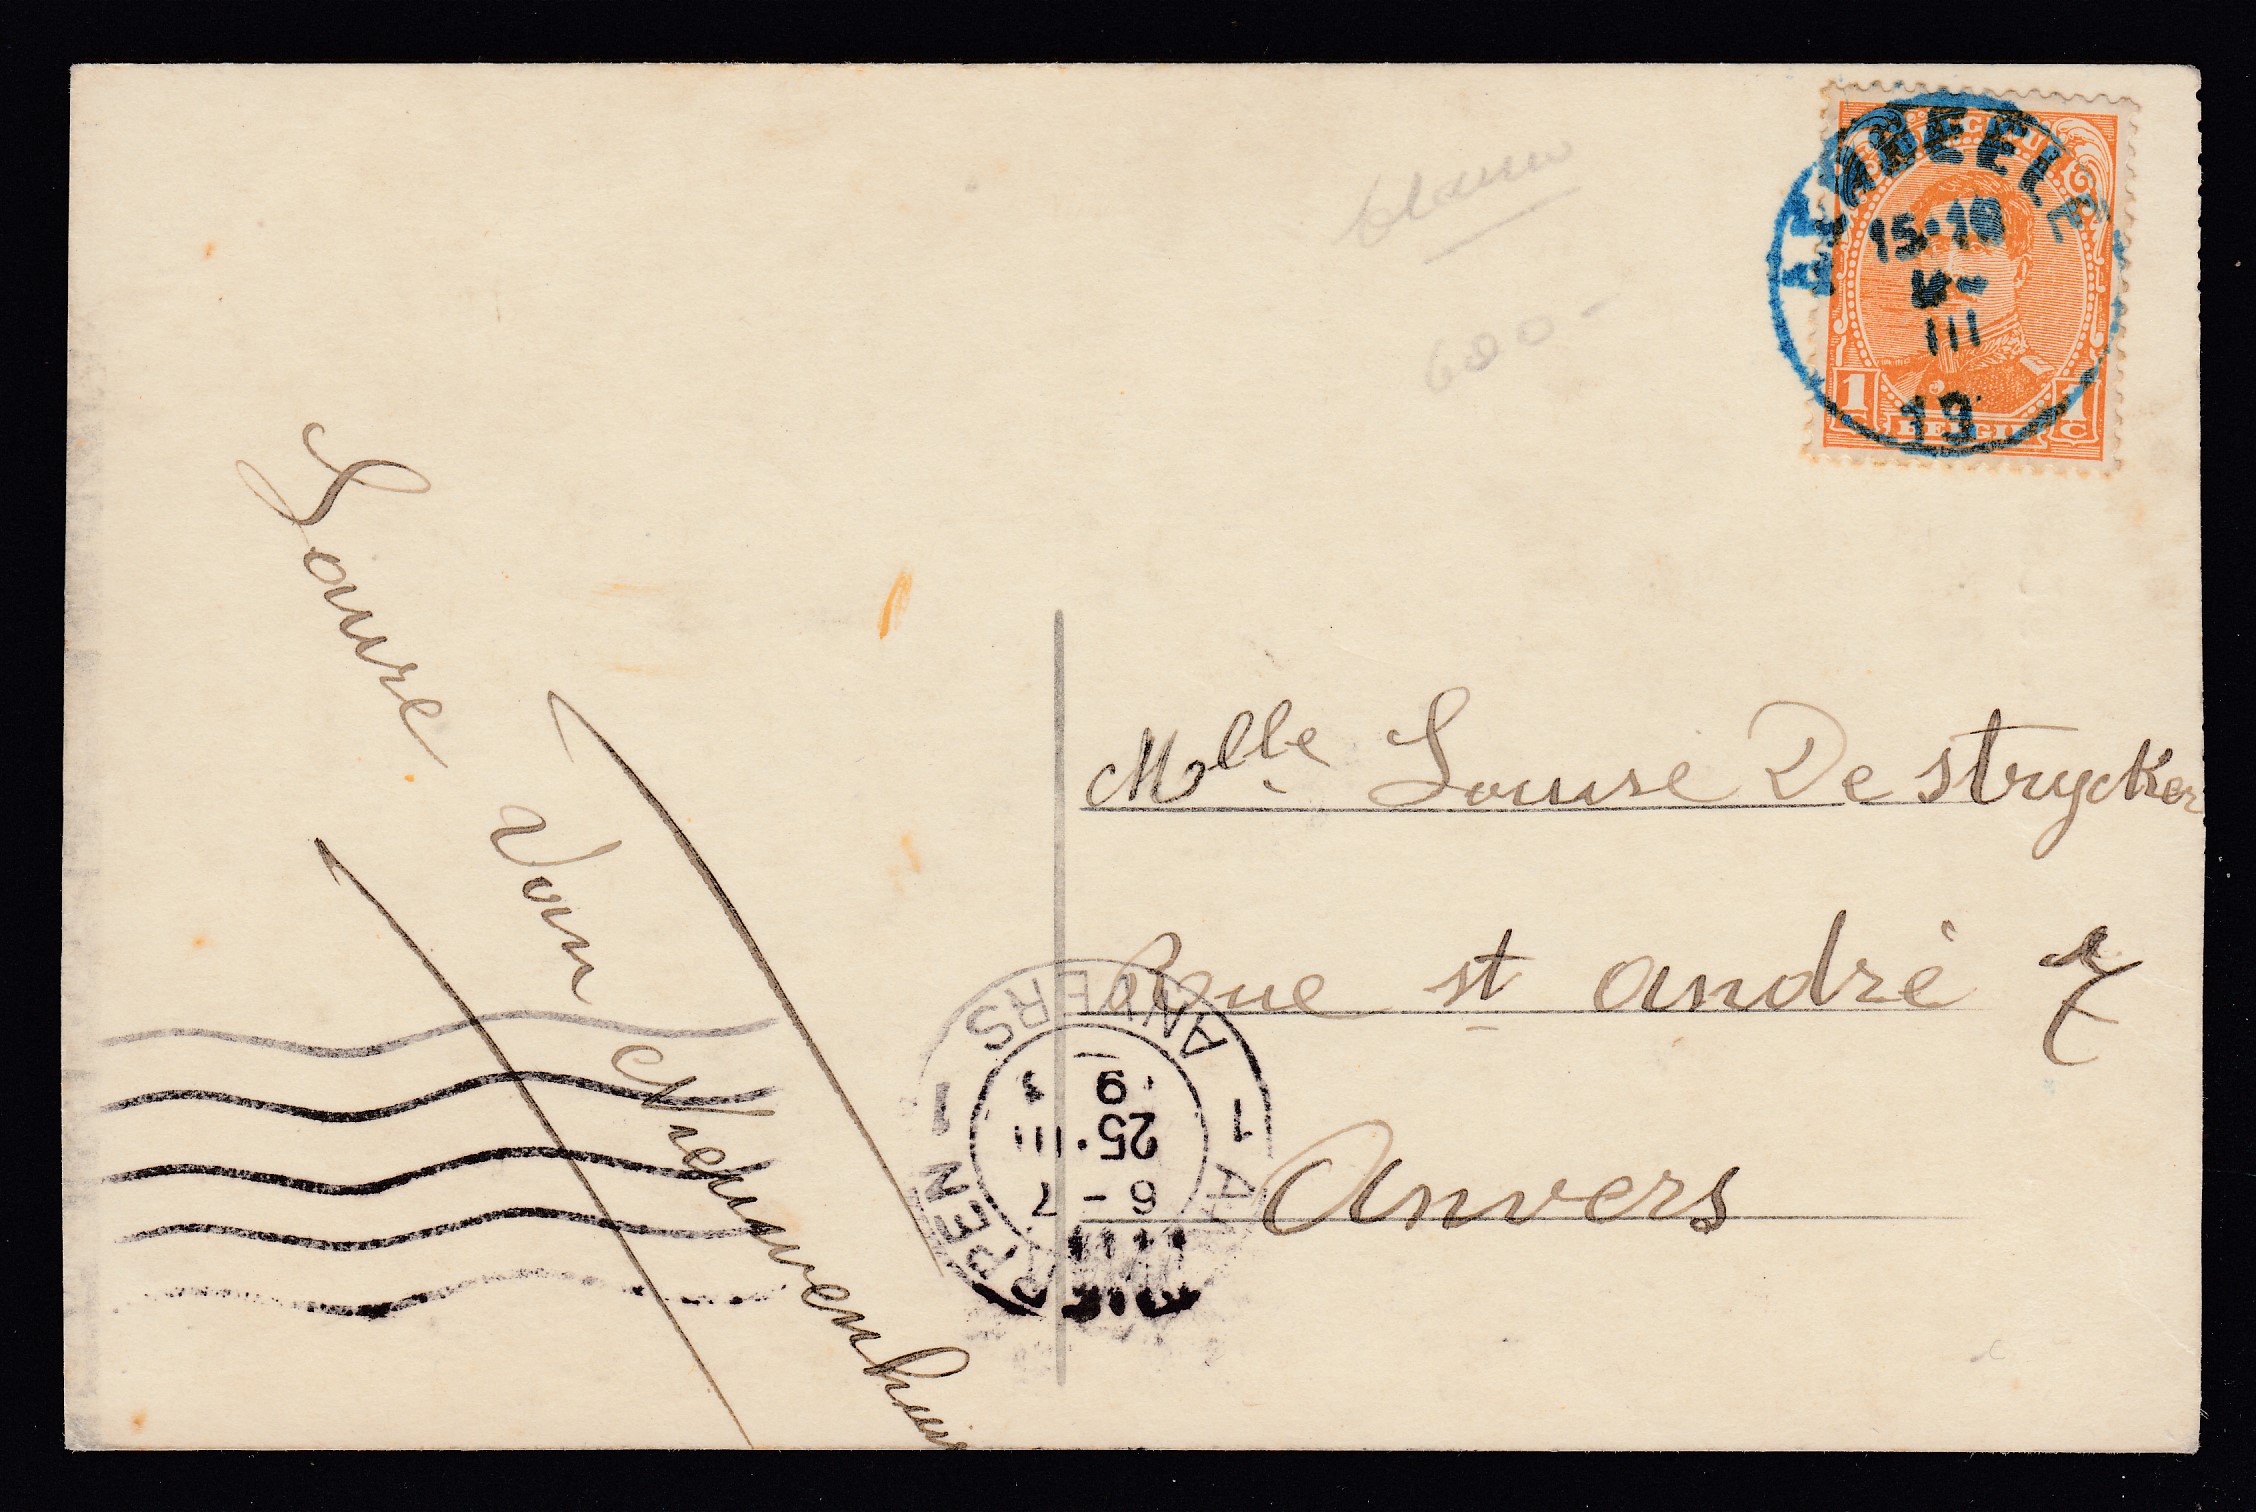 blauw
600-
15-18
III
19
1 1
C C
BELGIE
Louise
Van Nieuwenhuis
Mlle Louise De strycker
Rue st andré 7
Anvers
1 ANVERS 1
6-7
25·III
19